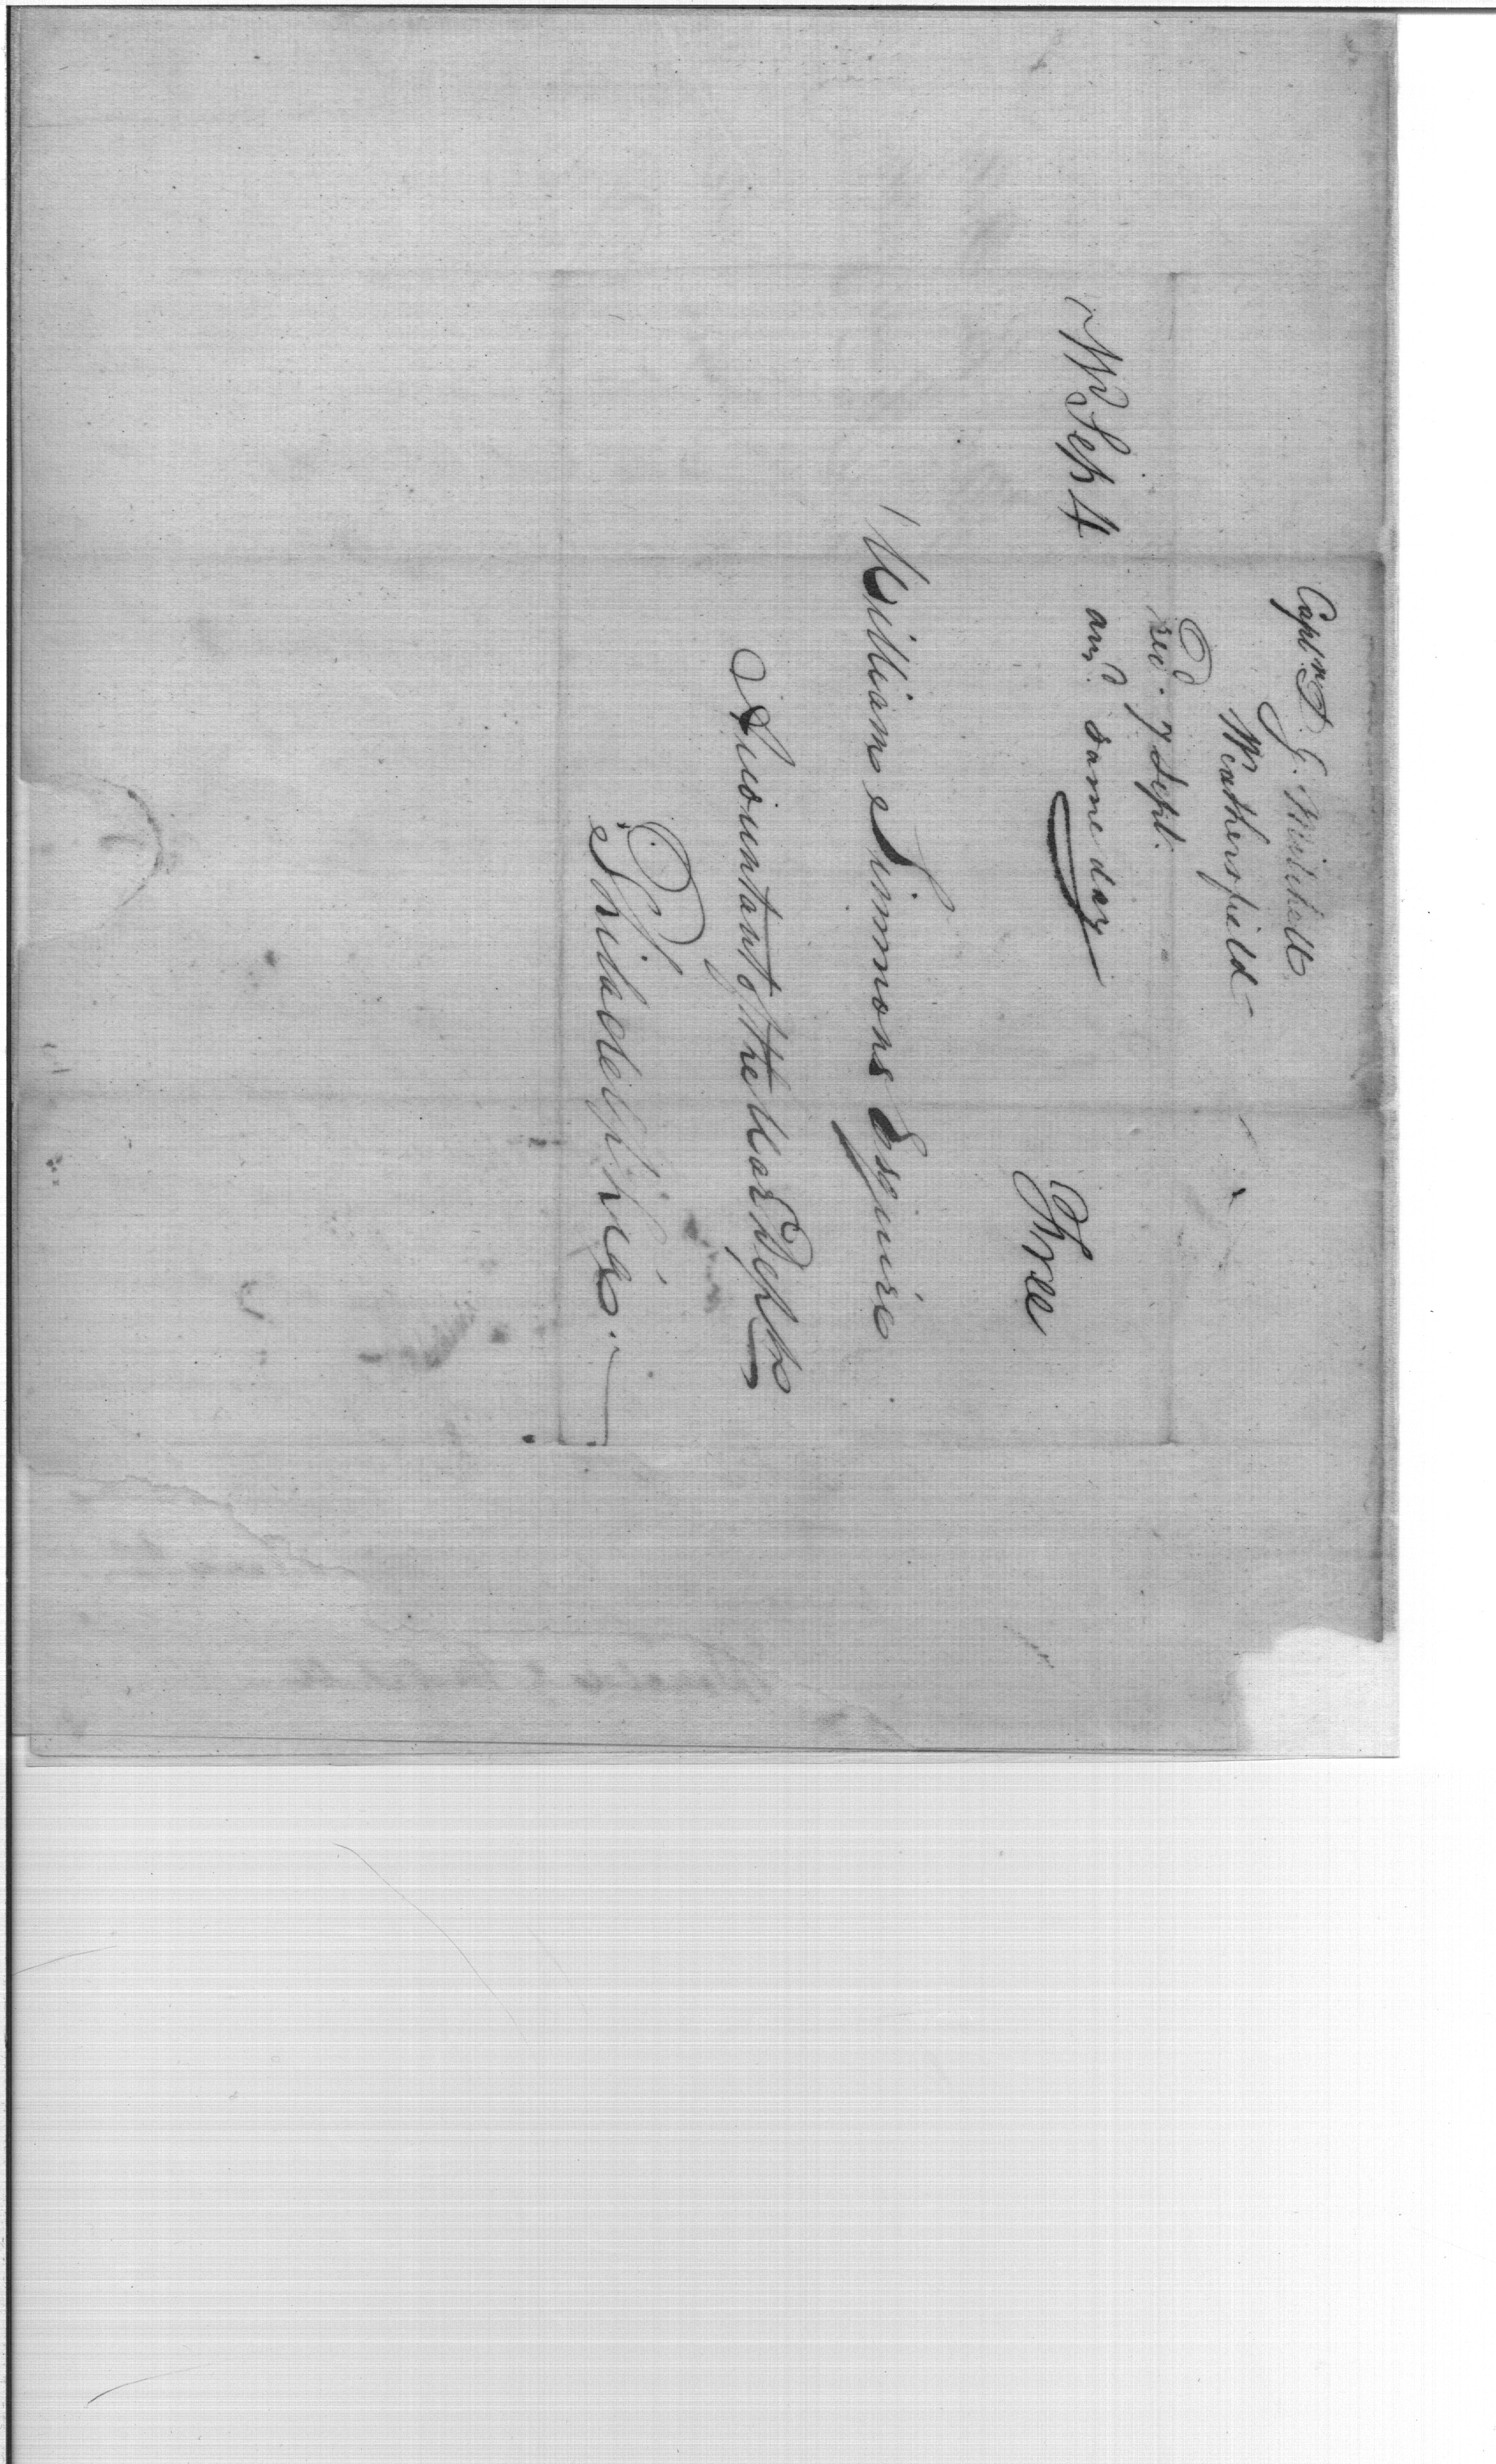 Capt. D. G. Mitchell
Weathersfield
recd. 7 Sept.
W Sep 4 ansd. same day
Free
William Simmons Esquire
Accountant of the War Dept
Philadelphia